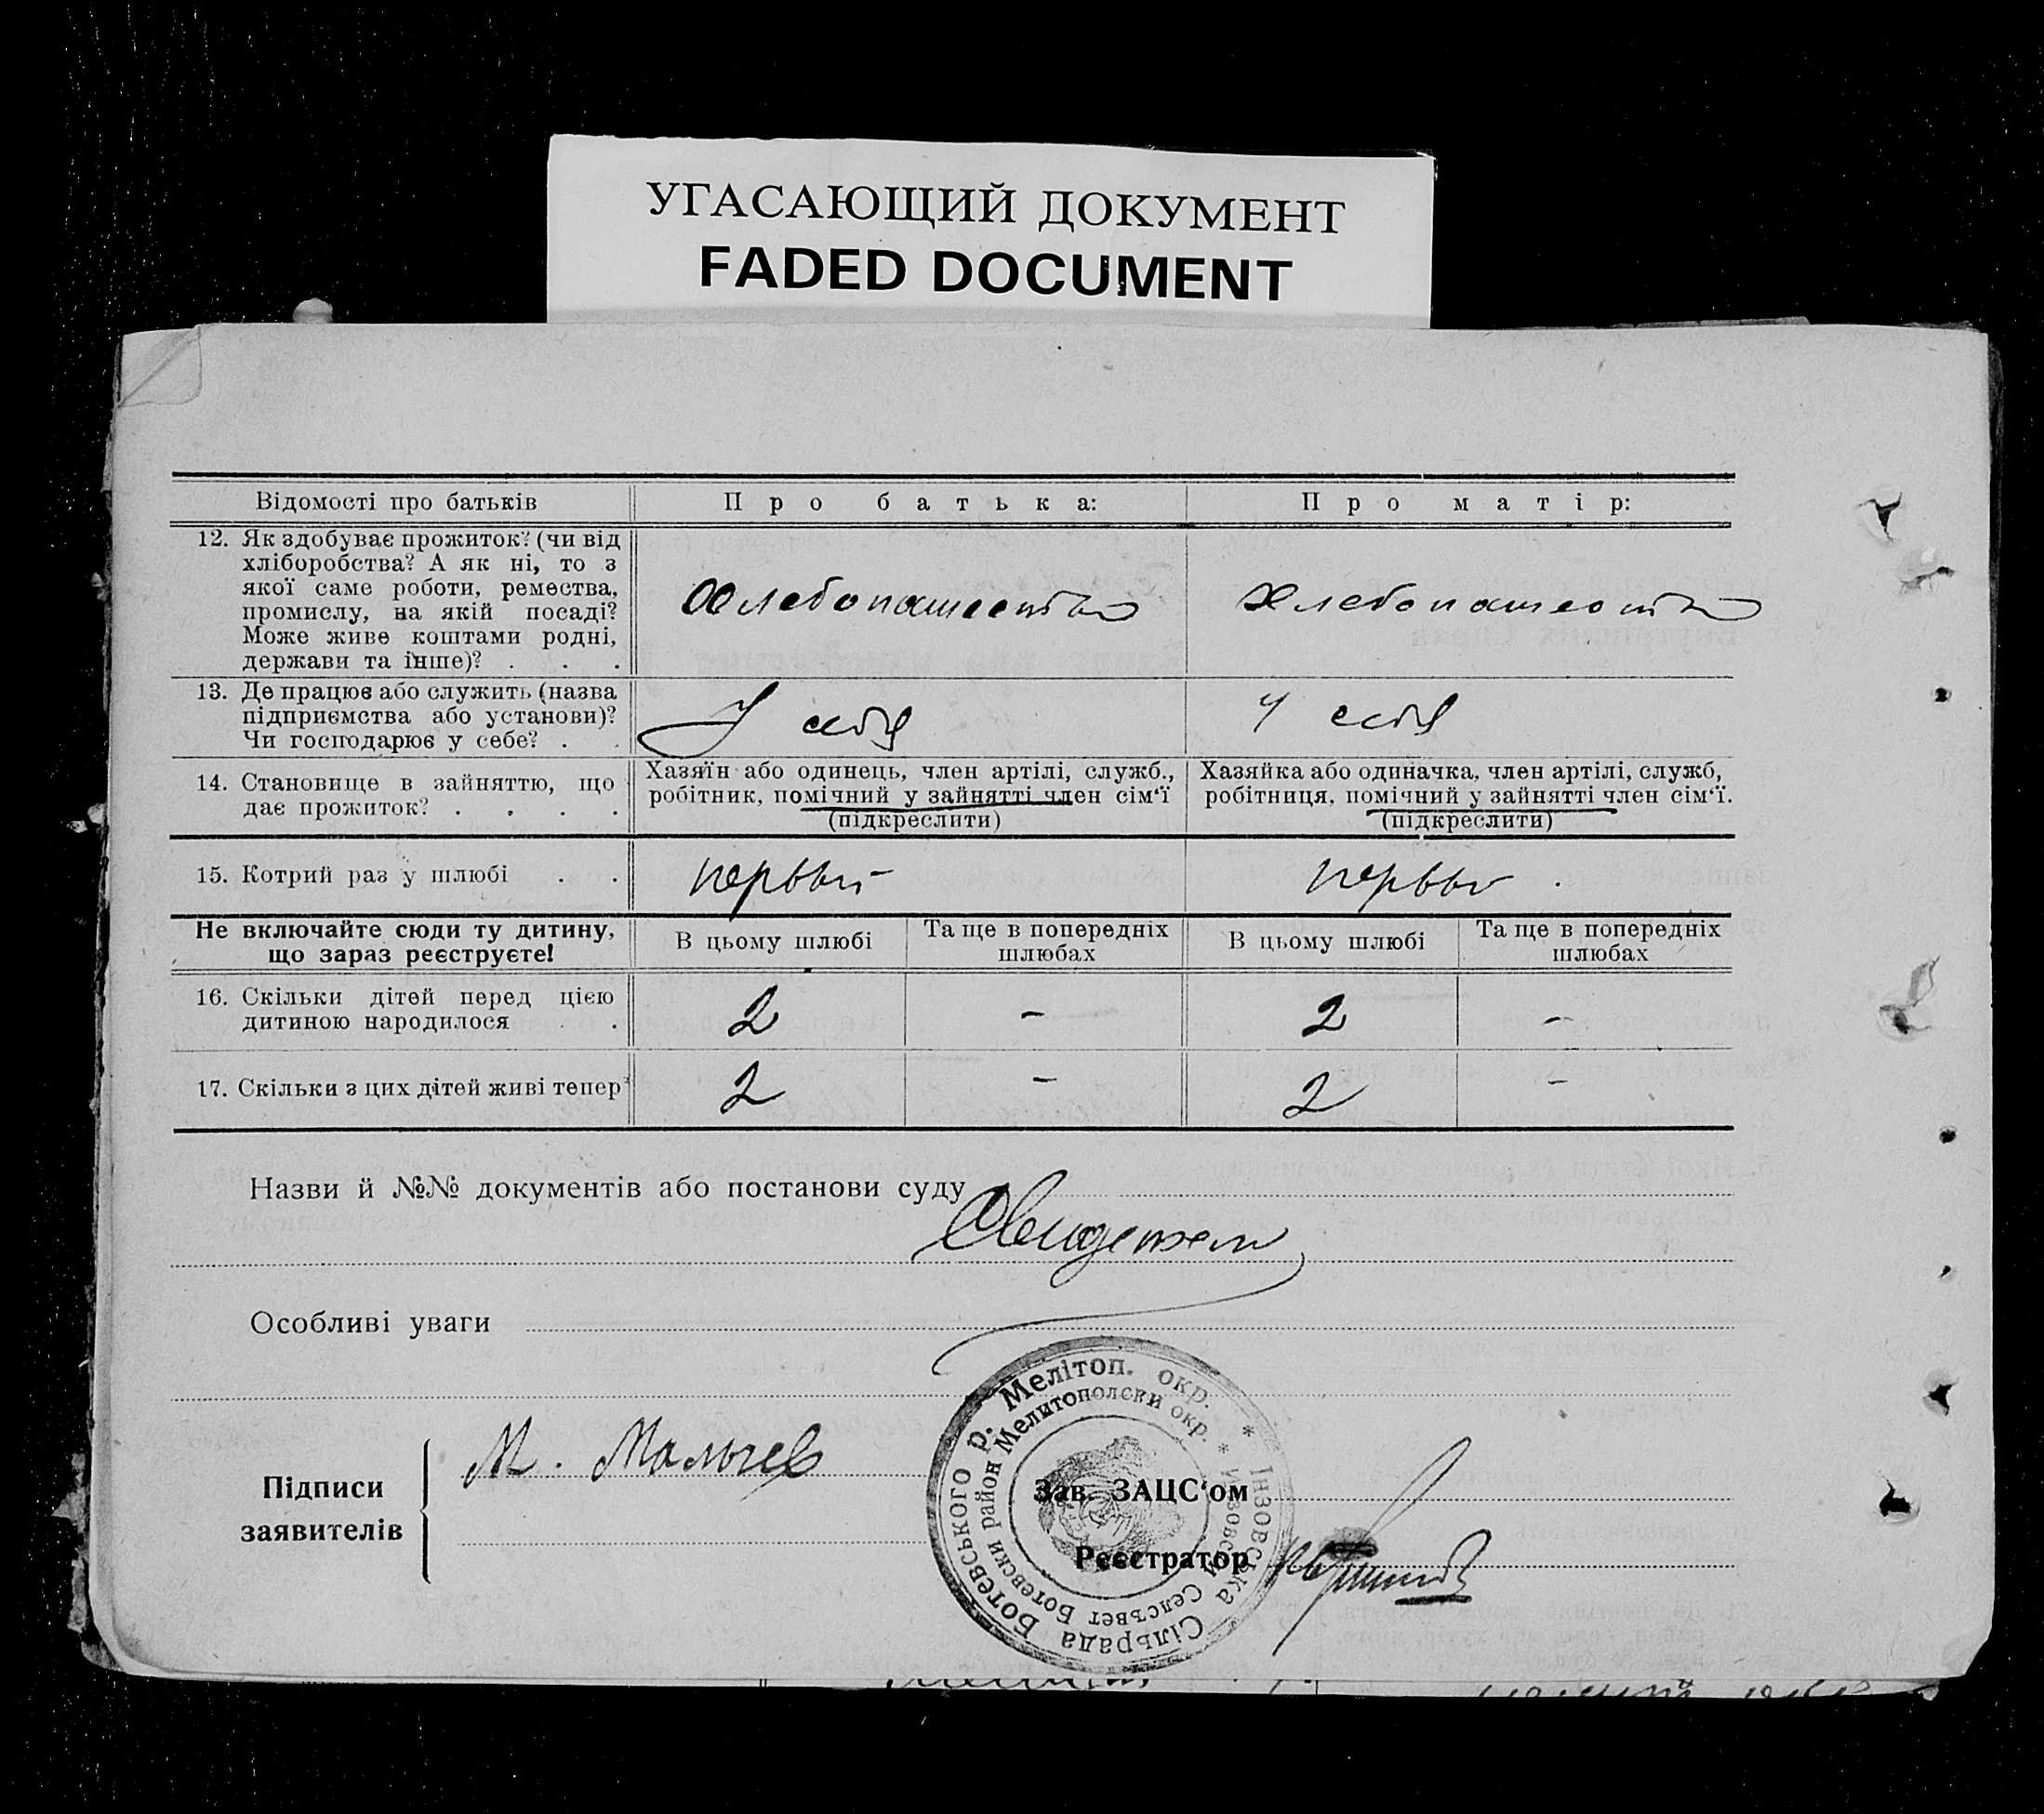 УГАСАЮЩИЙ ДОКУМЕНТ
FADED DOCUMENT
Відомості про батьків
Про батька:
Про матір:
12. Як здобуває прожиток? (чи від
хліборобства? А як ні, то з
якої саме роботи, ремества,
промислу, на якій посаді?
Може живе коштами родні,
держави та інше)? . . .
Хлебопашество
Хлебопашество
13. Де працює або служить (назва
підприємства або установи)?
Чи господарює у себе? . .
У себя
У себя
14. Становище в зайняттю, що
дає прожиток? . . . .
Хазяїн або одинець, член артілі, служб.,
робітник, помічний у зайнятті член сім‘ї
(підкреслити)
Хазяйка або одиначка, член артілі, служб,
робітниця, помічний у зайнятті член сім‘ї.
(підкреслити)
15. Котрий раз у шлюбі . .
первый
первый
Не включайте сюди ту дитину,
що зараз реєструєте!
В цьому шлюбі
Та ще в попередніх
шлюбах
В цьому шлюбі
Та ще в попередніх
шлюбах
16. Скільки дітей перед цією
дитиною народилося . .
2
-
2
-
17. Скільки з цих дітей живі тепер
2
-
2
-
Назви й №№ документів або постанови суду
Особливі уваги
Підписи
заявителів
М. Мальчев
Зав. ЗАЦС‘ом
Реєстратор
Інзовська Сільрада Ботевського р. Мелітоп. окр. *
Инзовски Селсъвет Ботевски район Мелитополски окр. *